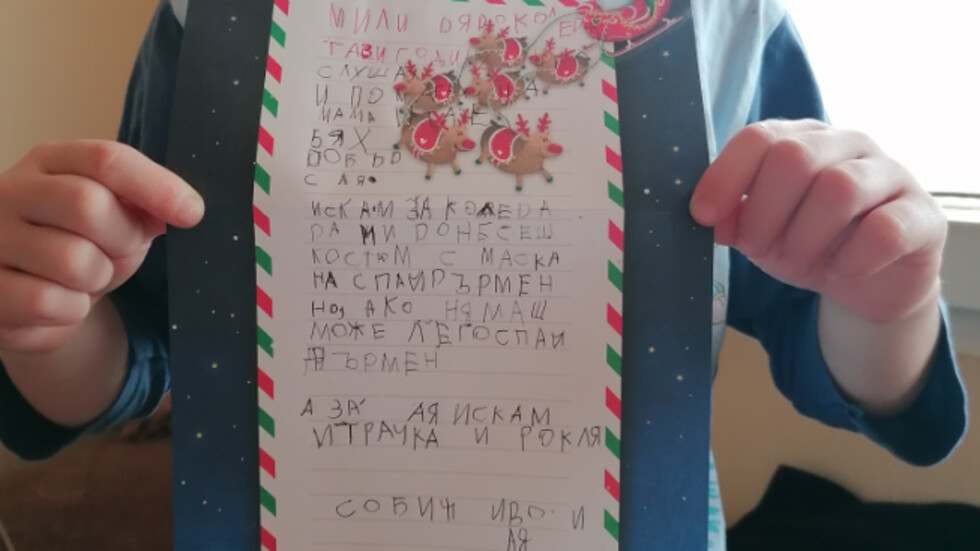 МИЛИ ДЯДО КОЛЕ
ТАЗИ ГОДИ
СЛУША
И ПО МА
МАМА И
БЯХ
ДОБЪР
С АЯ.
ИСКАМ ЗА КОЛЕДА
ДА МИ ДОНЕСЕШ
КОСТЮМ С МАСКА
НА СПАЙДЪРМЕН
НО, АКО НЯМАШ
МОЖЕ ЛЕГОСПАЙ
ДЪРМЕН
А ЗА АЯ ИСКАМ
ИГРАЧКА И РОКЛЯ
С ОБИЧ ИВО И
АЯ